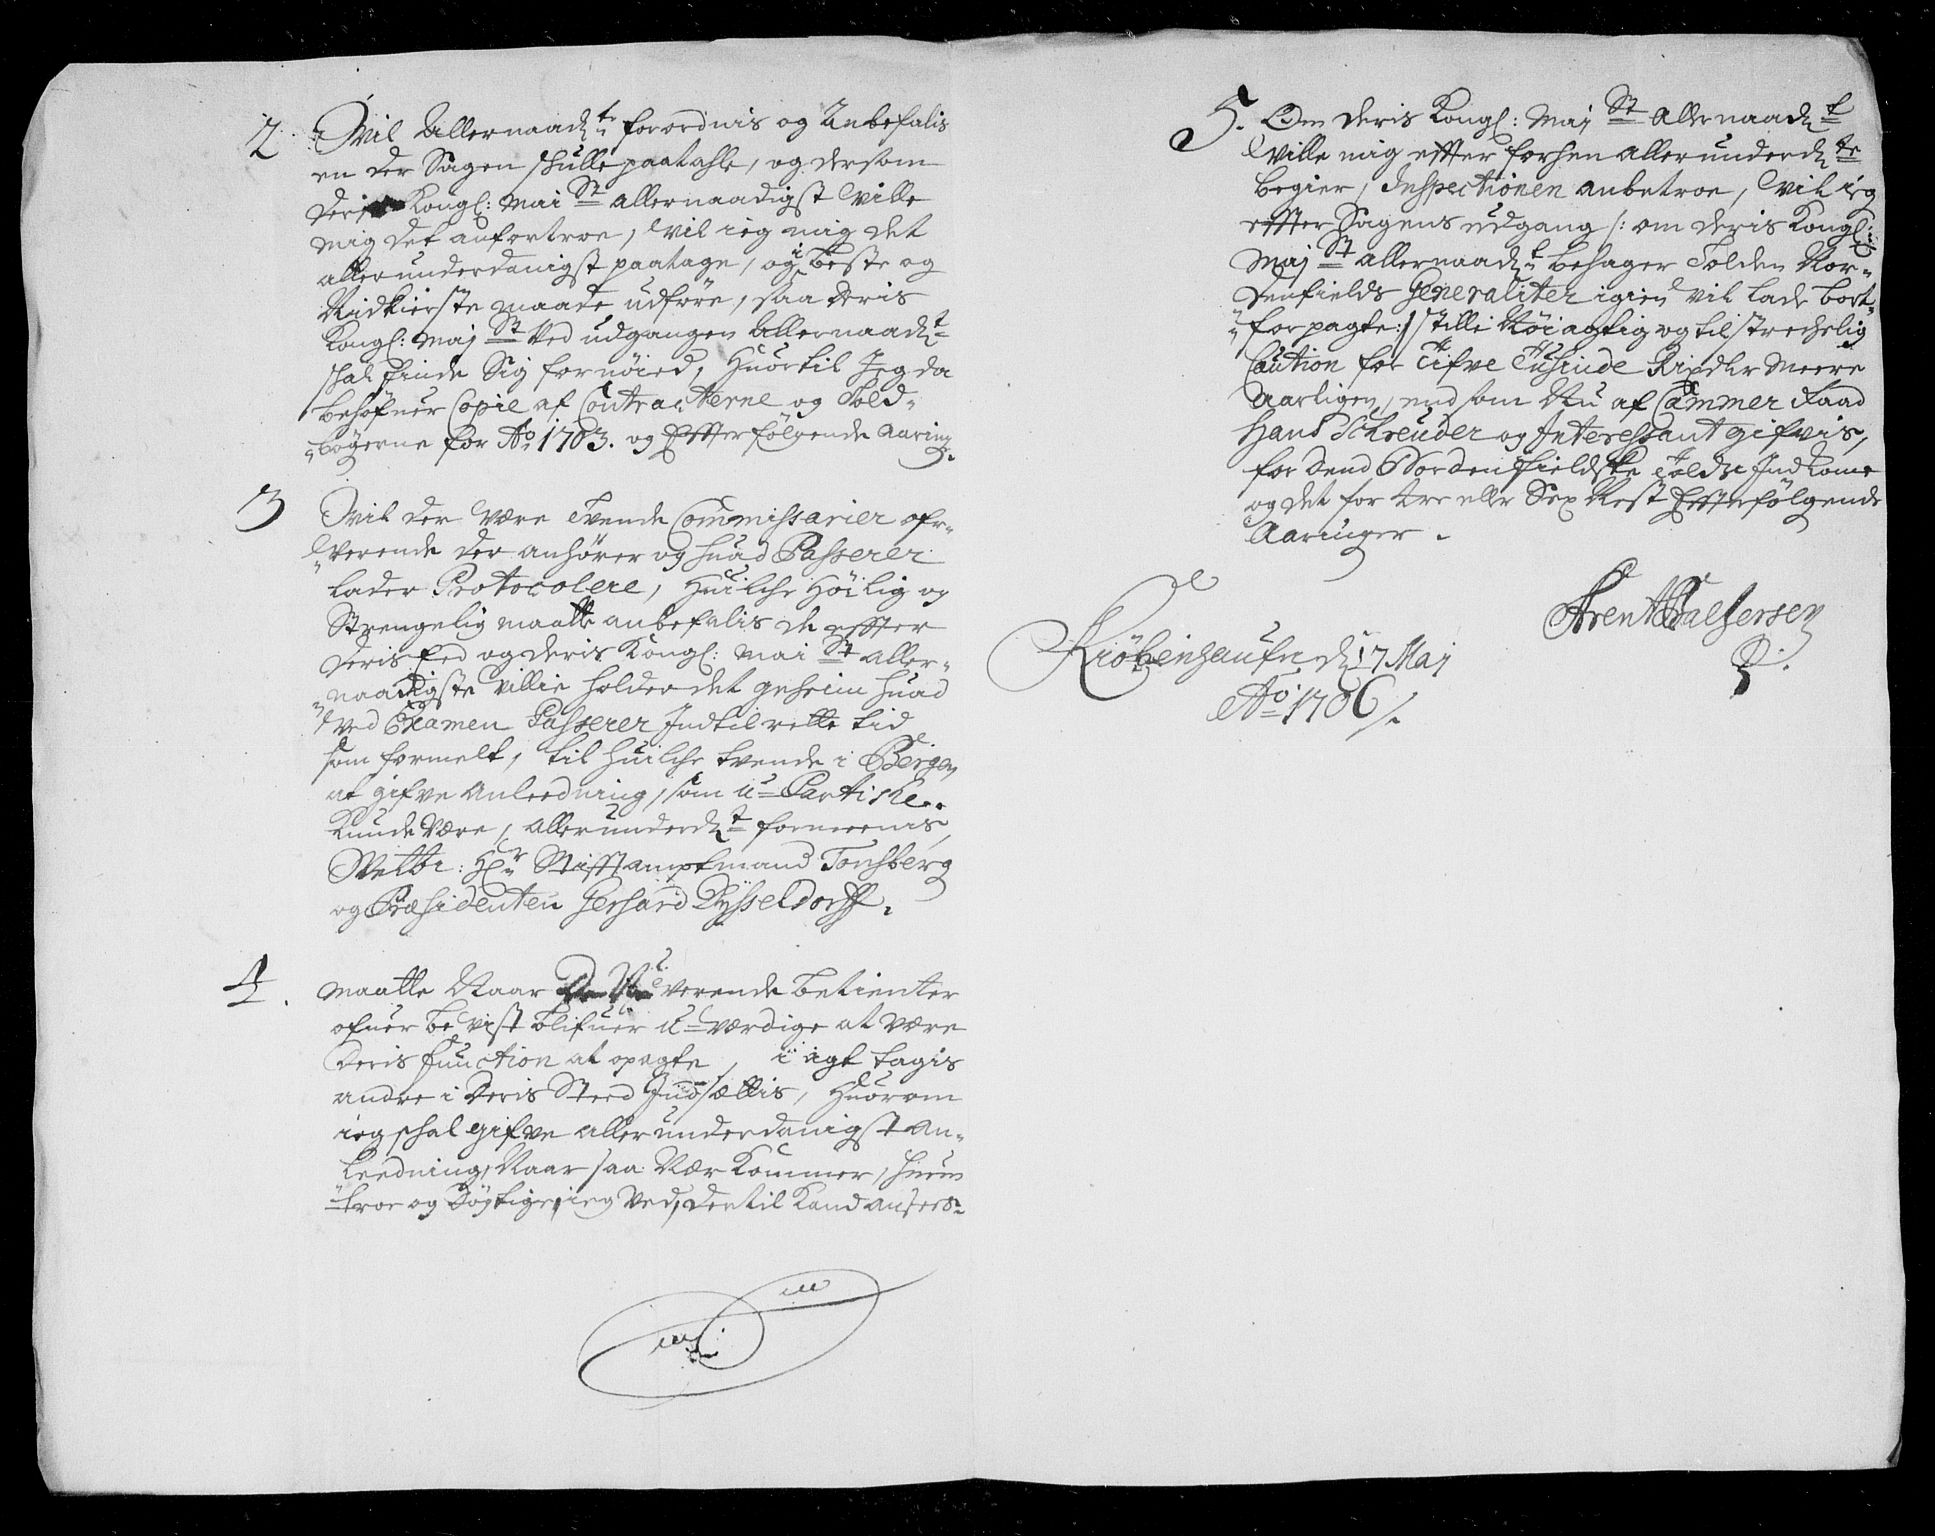 2. Vil Allernaad:te forordnis og Anbefalis
en der Sagen skulle paatahle, og dersom
Deris Kongl: Mai:st allernaadigst Ville
mig det anfortroe, Vil ieg mig det
allerunderdanigst paatage, og i beste og
Nidkierste maade udföre, saa Deris
Kongl: Maj:st Ved udgangen Allernaad:t
skal finde Sig fornöied, Huortil Jeg da
behöfuer Copie af Contracterne og Told-
bögerne for Ao 1703. og Effterfölgende Aaring.
3 Vil der Være Tvende Commissarier ofr-
Verende der anhörer og huad Passerer
lader Protocolere, Huilche Höilig og
Strengelig maatte anbefalis de effter
Deris Eed og Deris Kongl: Mai:st aller-
naadigste Villie holder det geheim huad
Ved Examen Passerer Indtil rette tid
som formelt, til huilche tvende i Bergen
at gifve Anleedning, som u-Partiske
Kunde Være, allerunderd:t formeenis,
Velbr: Hr: Stifftamptmand Tonsberg
og Præsidenten Gerhard Dysseldorff.
4. Maatte Naar De Nu verende betienter
ofuer beVist blifuer u-værdige at være
Deris function at opagte, i agt tagis
andre i Deris Sted Indsættis, Huorom
ieg skal gifve allerunderdanigst An-
leedning, Naar saa Nær Kommer, huem
troe og Dögtige, ieg Ved, Dertil Kand ansees.
5. Om Deris Kongl: Maj:st Allernaad:t
Ville mig effter forhen allerunderd:te
begier, Inspectionen anbetroe, Vil ieg
effter Sagens udgang /: om Deris Kongl:
Maj:st allernaad:t behager Tolden Nor-
denfields Generaliter igien Vil lade bort-
forpagte :/ stille Nöiagtig og tilstrechelig
Caution for Tifve Tusinde Rixdlr meere
Aarligen, end som Nu af Cammer Raad
Hans Schreuder og Interessant gifvis,
for Dend Nordenfieldske Told Indkome
og det for tre eller Sex Nest Effterfölgende
Aaringer.
Kiöbenhaufn d: 17 Maj
Ao: 1706 /.
Arent Balsersen